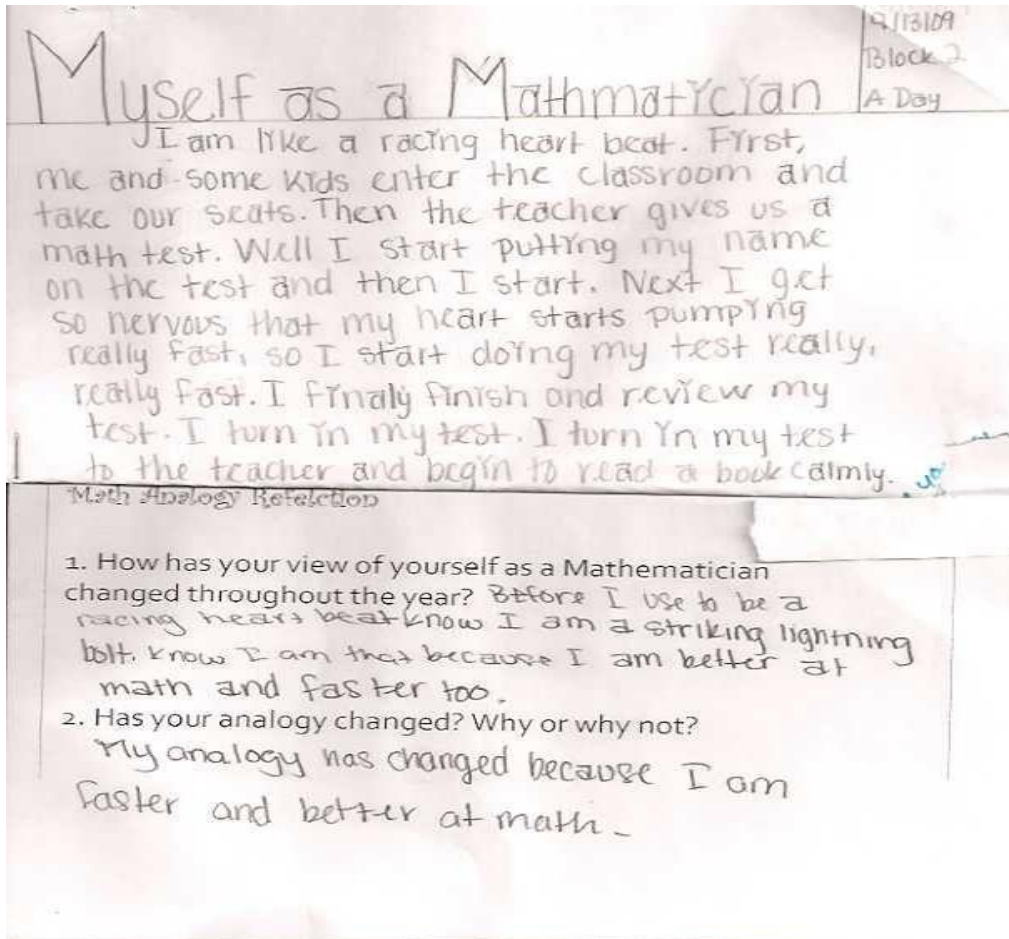 9/13/09
Block 2
A Day
Myself as a Mathmatician
I am like a racing heart beat. First,
me and some kids enter the classroom and
take our seats. Then the teacher gives us a
math test. Well I start putting my name
on the test and then I start. Next I get
so nervous that my heart starts pumping
really fast, so I start doing my test really,
really fast. I finaly finish and review my
test. I turn in my test. I turn in my test
to the teacher and begin to read a book calmly.
Math Analogy Refelction
1. How has your view of yourself as a Mathematician
changed throughout the year? Before I use to be a
racing heart beat know I am a striking lightning
bolt. know I am that because I am better at
math and faster too.
2. Has your analogy changed? Why or why not?
My analogy has changed because I am
faster and better at math.